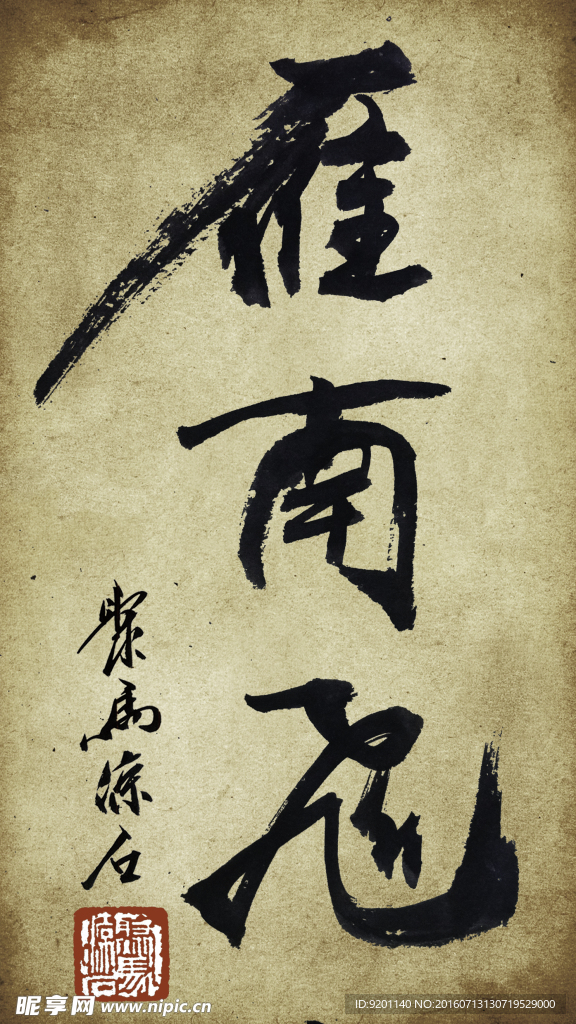 雁南飛
聚馬涼石
昵享网 www.nipic.cn
ID:9201140 NO:20160713130719529000